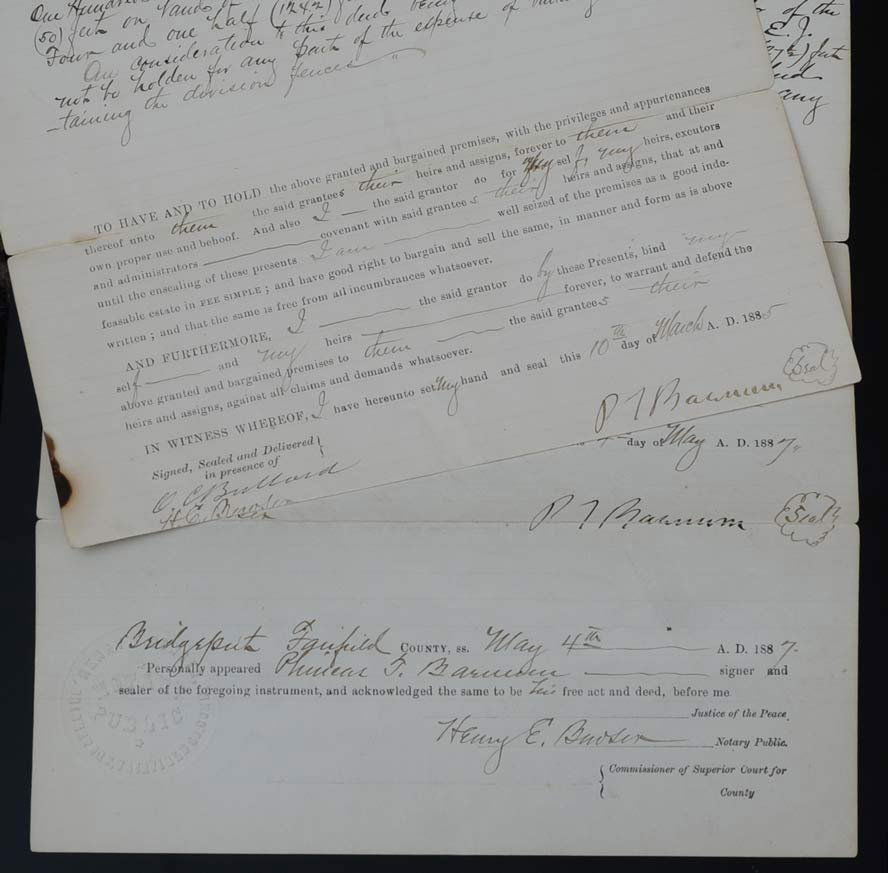 One Hundred
(50) feet on lands
Four and one half (124½)
One consideration to this deed being
not be holden for any part of the expense of
-taining the division fences "
of the
E. J.
feet
and
any
TO HAVE AND TO HOLD the above granted and bargained premises, with the privileges and appurtenances
thereof unto them the said grantees their heirs and assigns, forever to them and their
own proper use and behoof. And also I the said grantor do for my self, my heirs, executors
and administrators covenant with said grantees their heirs and assigns, that at and
until the ensealing of these presents I am well seized of the premises as a good inde-
feasable estate in FEE SIMPLE; and have good right to bargain and sell the same, in manner and form as is above
written; and that the same is free from all incumbrances whatsoever.
AND FURTHERMORE, I the said grantor do by these Presents, bind my
self and my heirs forever, to warrant and defend the
above granted and bargained premises to them the said grantees their
heirs and assigns, against all claims and demands whatsoever.
IN WITNESS WHEREOF, I have hereunto set my hand and seal this 10th day of March A. D. 1885
Signed, Sealed and Delivered
in presence of
P T Barnum Seal
O. C. Bullard
H. E. Bowser
day of May A. D. 1887.
P T Barnum Seal
Bridgeport Fairfield COUNTY, ss. May 4th A. D. 1887.
Personally appeared Phineas T. Barnum signer and
sealer of the foregoing instrument, and acknowledged the same to be his free act and deed, before me
Justice of the Peace.
Henry E. Bowser Notary Public.
Commissioner of Superior Court for
County